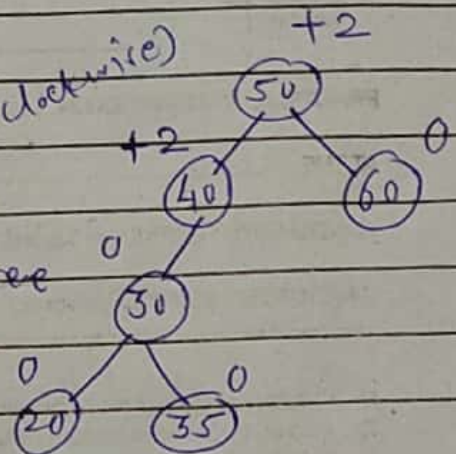 +2
clockwise)
50
+2
0
40
60
0
30
0
0
20
35